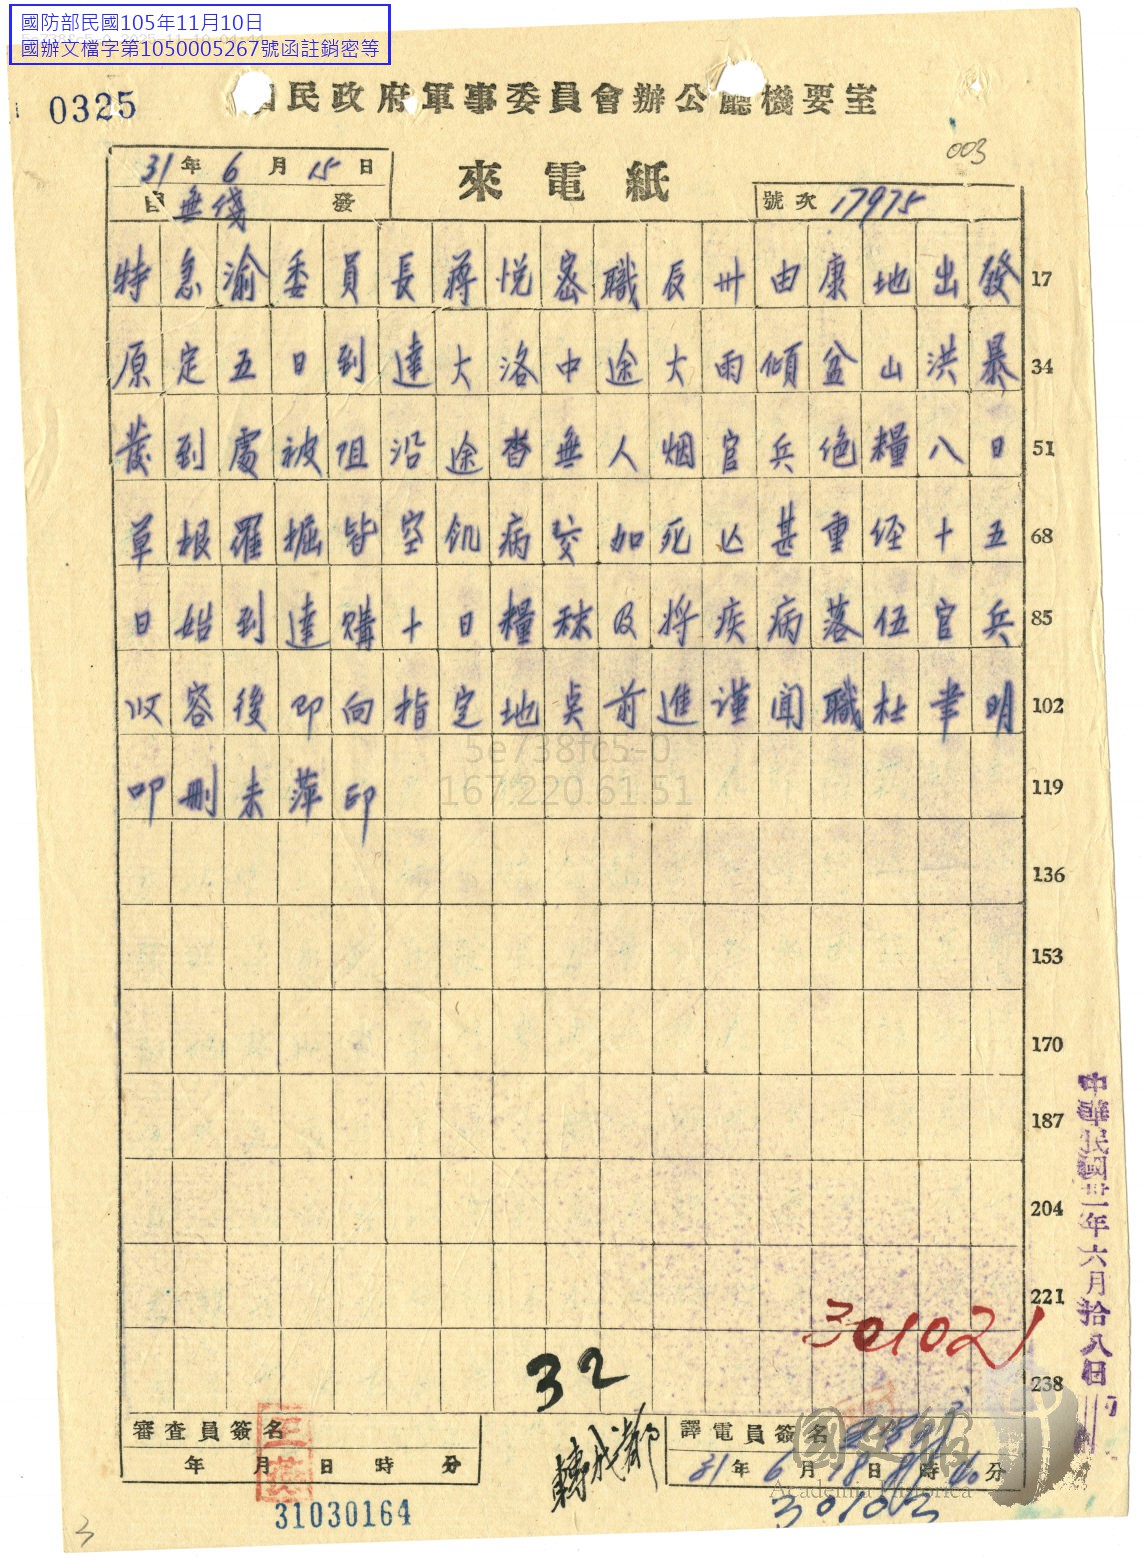 國防部民國105年11月10日
國辦文檔字第1050005267號函註銷密等
0325
國民政府軍事委員會辦公廳機要室
003
來電紙
31年6月15日
自無綫發
號次 17975
特急渝委員長蔣悅密職辰卅由康地出發 17
原定五日到達大洛中途大雨傾盆山洪暴 34
發到處被阻沿途杳無人烟官兵絕糧八日 51
草根羅掘皆空飢病交加死亡甚重經十五 68
日始到達購十日糧秣及將疾病落伍官兵 85
收容後即向指定地点前進謹聞職杜聿明 102
叩刪未萍印 119
5e738fc5-0
167.220.61.51
136
153
170
187
204
221
238
中華民國卅一年六月拾八日
301021
32
審查員簽名
年 月 日 時 分
31030164
轉成都
譯電員簽名
31年6月18日8時40分
國史館
Academia Historica
30102
3